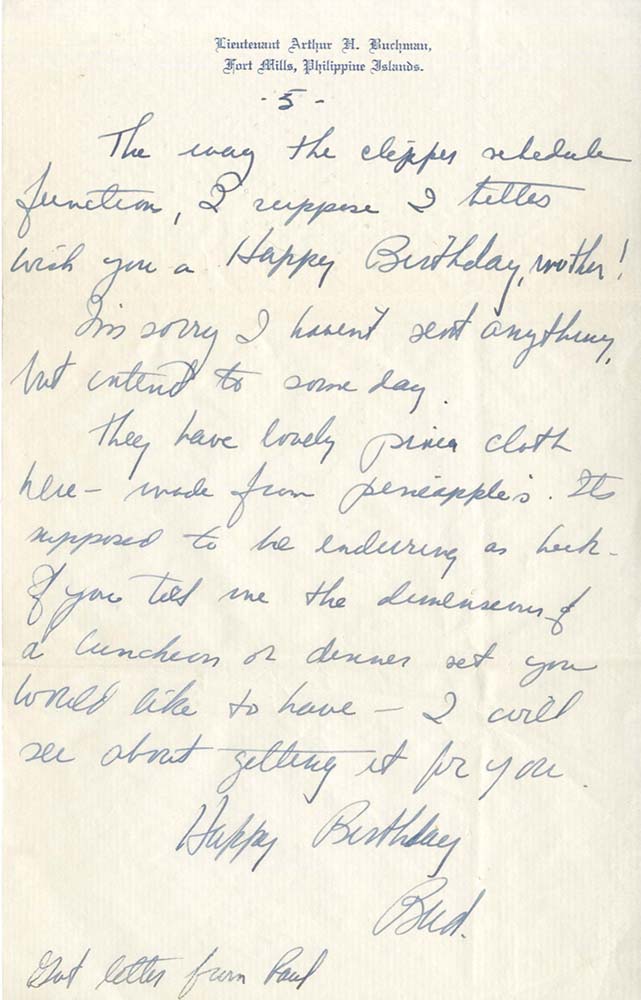 Lieutenant Arthur H. Buchman,
Fort Mills, Philippine Islands.
- 5 -
The way the clipper schedule
function, I suppose I better
wish you a Happy Birthday, mother!
I'm sorry I haven't sent anything,
but intend to some day.
They have lovely pina cloth
here - made from pineapple's. Its
supposed to be enduring as heck -
If you tell me the dimensions of
a luncheon or dinner set you
would like to have - I will
see about getting it for you.
Happy Birthday
Bud.
Got letter from Paul